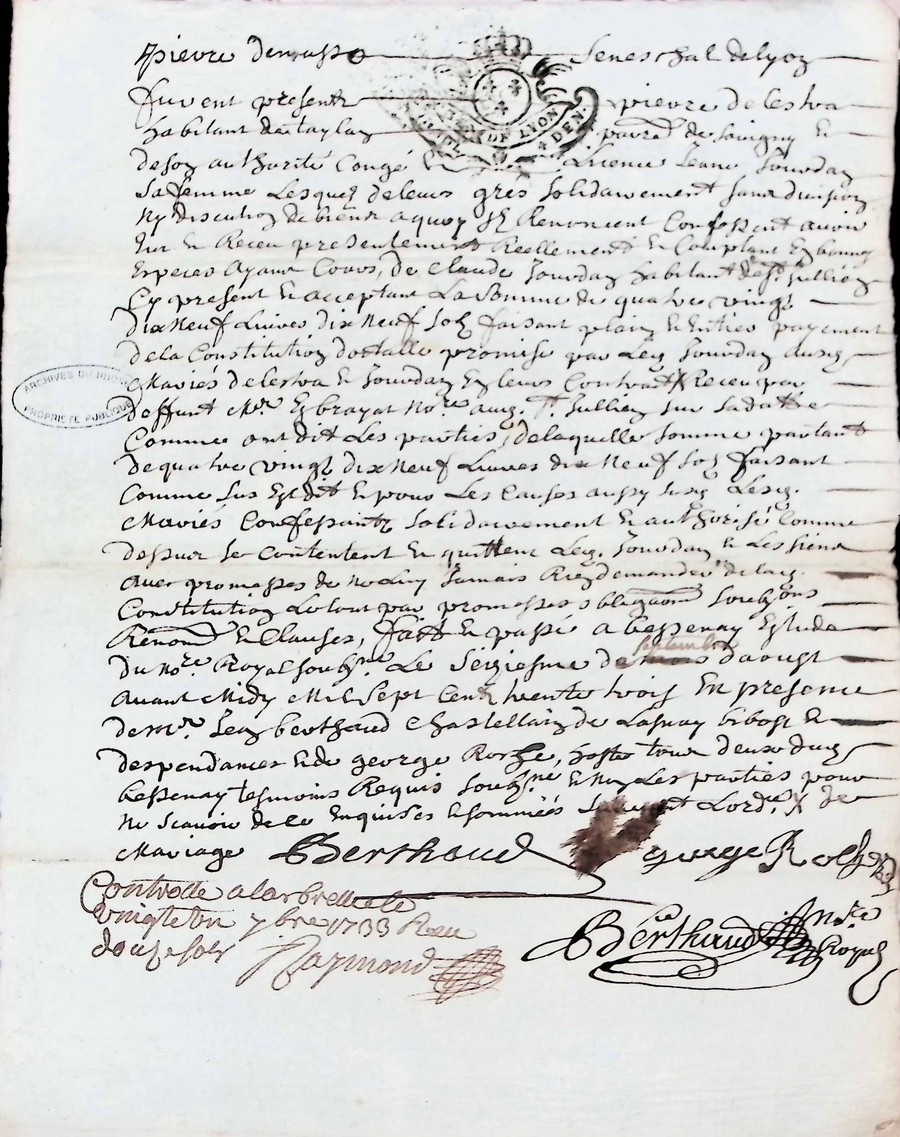 Seneschal de Lyon
furent presentz pierre delestra
habitant de parr. de Savigny &
de son authorité Congé & Licence Jeane Jourdan
sa femme Lesquelz de leurs grés solidairement sans division
ny discution de biens a quoy ilz Renoncent Confessent avoir
Eu & Receu presentement Reellement & Comptant En bonnes
Especes Ayant Cours, de Claude Jourdan habitant de St Jullien
Cy present & acceptant La Somme de quatre vingt
dix Neuf Livres dix Neuf solz faisant plain & Entier payement
de la Constitution dottalle promise par Led. Jourdan ausd.
Mariés delestra & Jourdan En leurs Contrat X Receu par
deffunt Mre Esbrayat Nore aud. St. Jullien sur sa datte
Comme ont dit Les parties, de laquelle somme partant
de quatre vingt dix Neuf Livres dix Neuf solz faisant
Comme sus Est dit & pour Les Causes aussy susd. Lesd.
Mariés Confessantz solidairement & authorisé Comme
dessus se Contentent & quittent Led. Jourdan & Les siens
avec promesses de ne Luy Jamais Rien demander de lad.
Constitution Le tout par promesses obligaons Soubz.ons
Renonons & Clauses, fait & passé a bessenay Estude
du Nore Royal soubzne Le Seiziesme de mois daoust septembre
avant Midy Mil Sept Centz trente trois En presence
de mr. Jean berthaud Chastellain de bibost &
despendances & de george Roche, hoste tous deux dud.
bessenay tesmoins Requis soubzne & Non Les parties pour
Ne Scavoir de ce Enquises & sommées X de
Mariage Berthaud george Roche
Controllé a larbresle le
vingt un 7bre 1733 Receu
douze sols Raymond
Berthaud Nre Royal
DE LYON
DENI
ARCHIVES DU RHONE
PROPRIETE PUBLIQUE